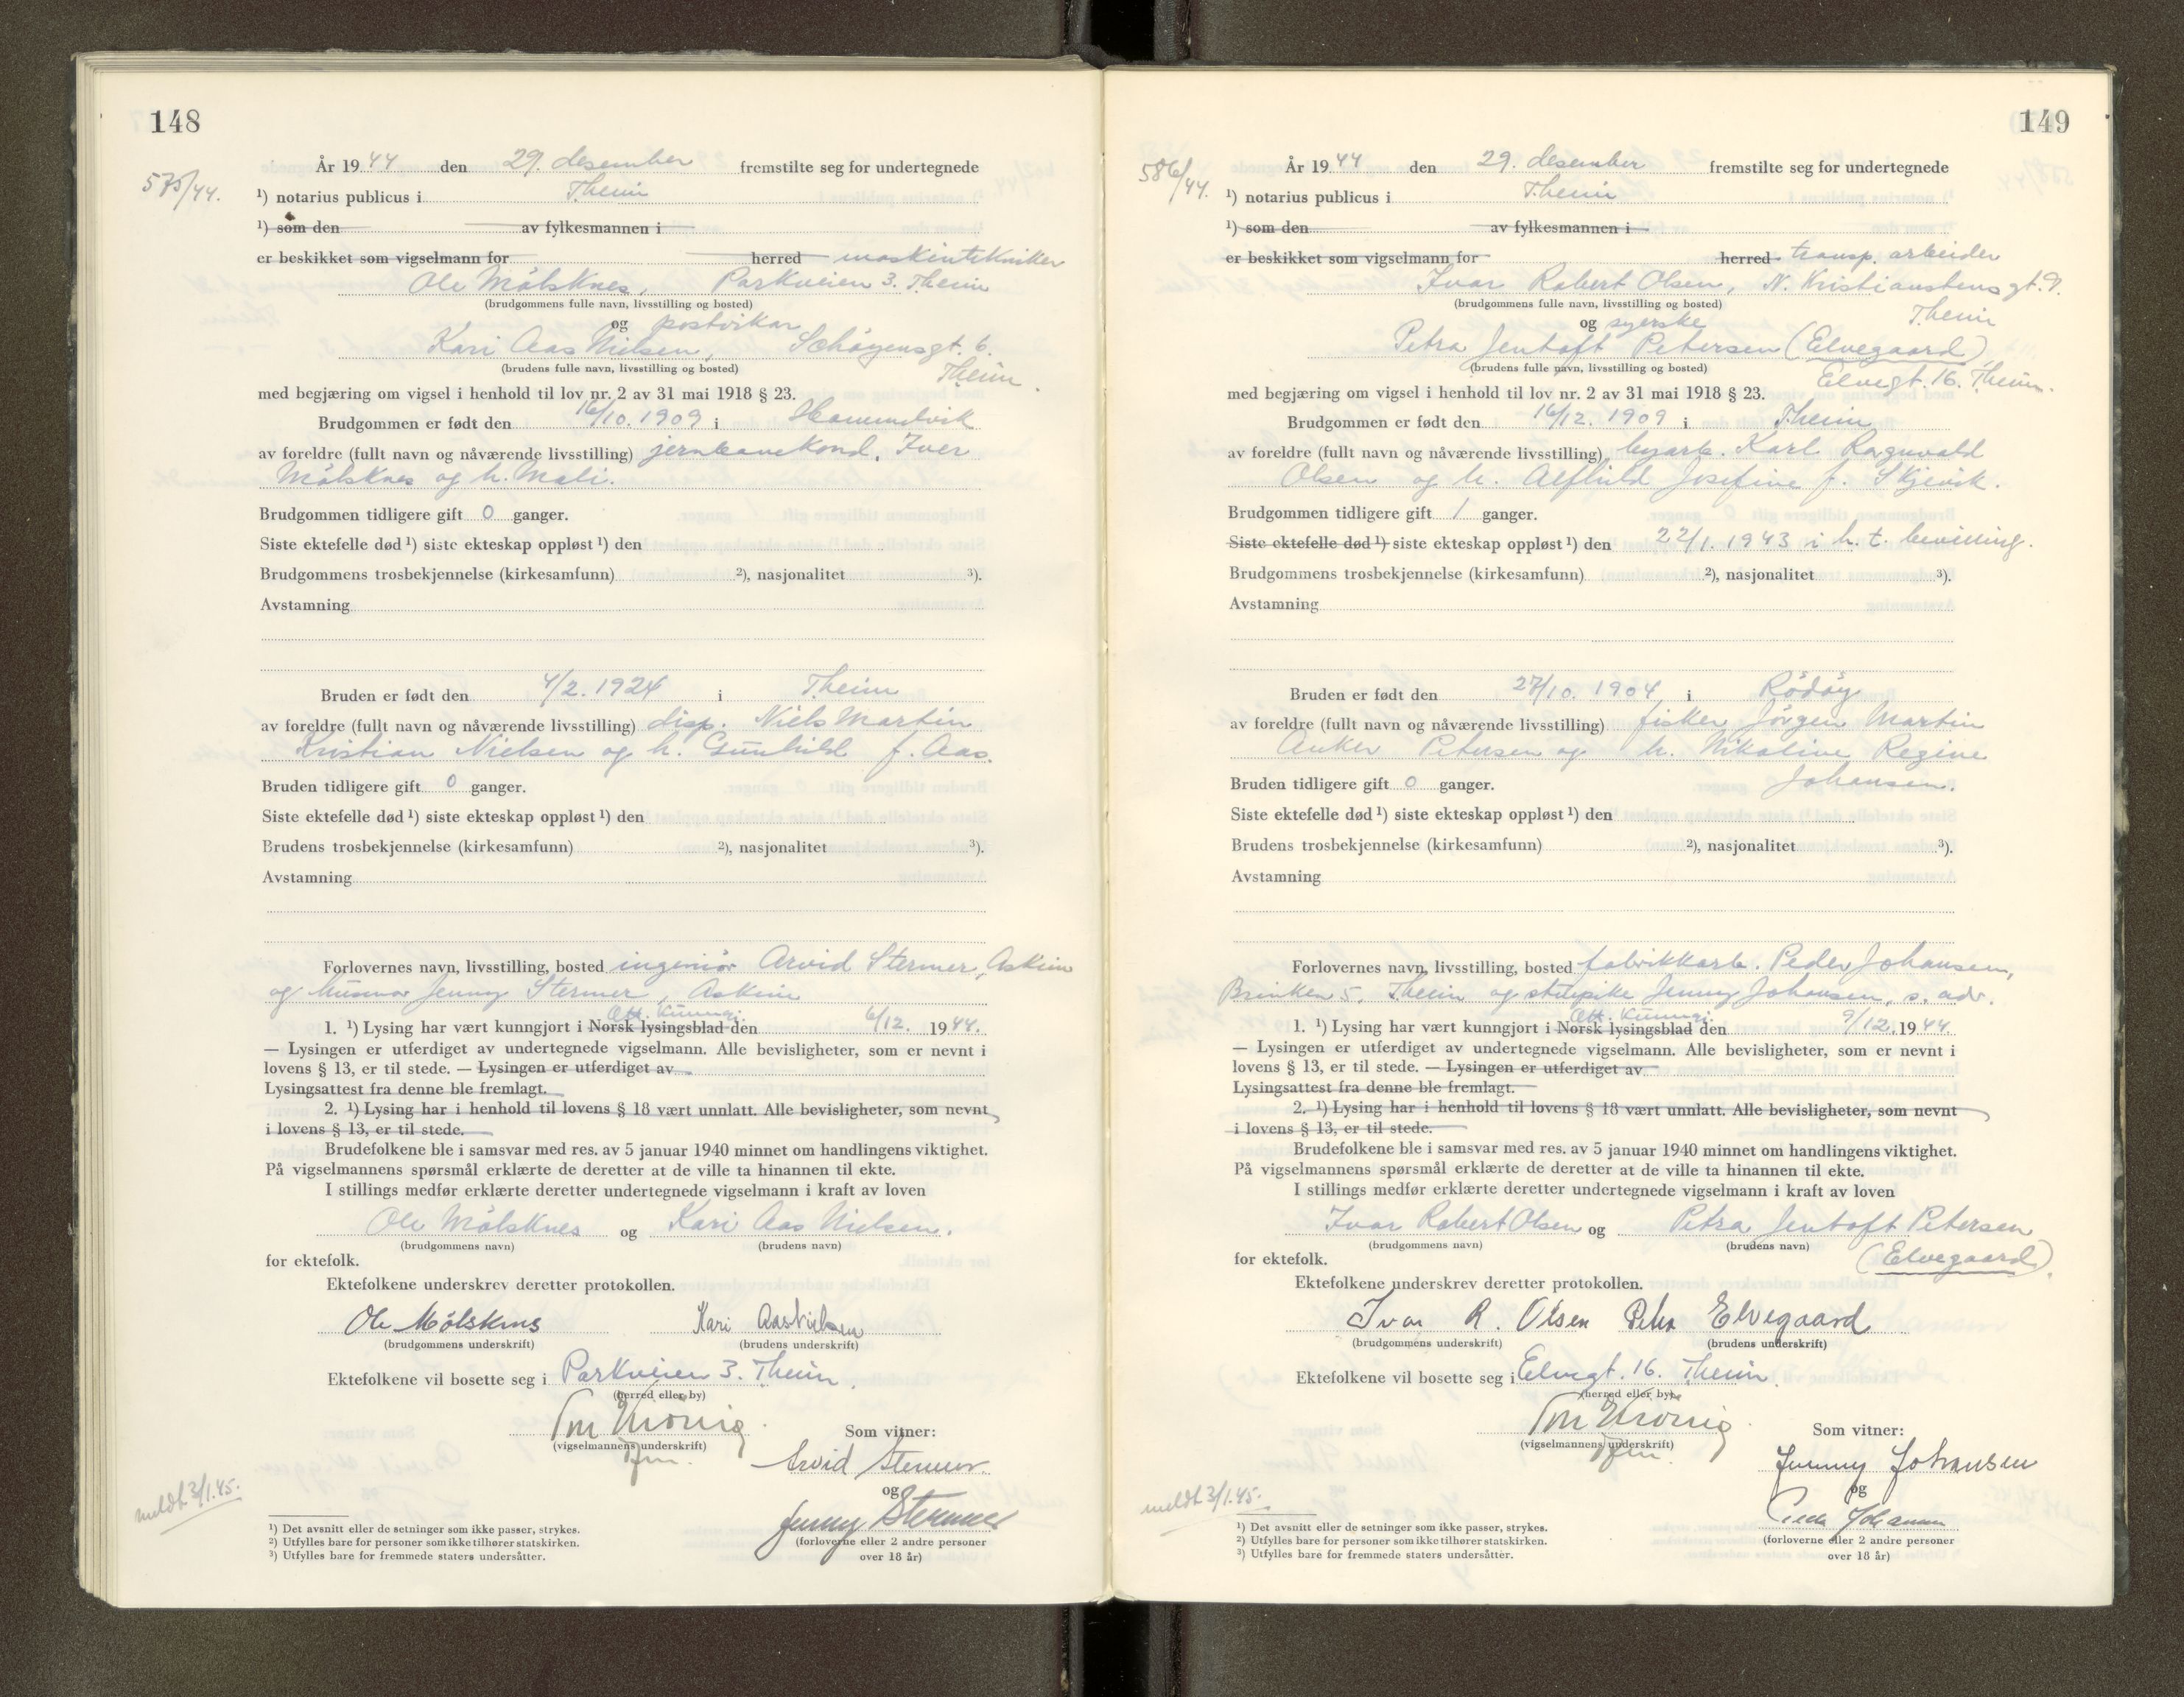 148
575/44.
År 1944 den 29. desember fremstilte seg for undertegnede
¹) notarius publicus i Theim
¹) som den av fylkesmannen i
er beskikket som vigselmann for herred maskintekniker
Ole Mölsknes, Parkveien 3. Theim
(brudgommens fulle navn, livsstilling og bosted)
og postvikar
Kari Aas Nielsen, Schöyensgt. 6.
(brudens fulle navn, livsstilling og bosted) Theim.
med begjæring om vigsel i henhold til lov nr. 2 av 31 mai 1918 § 23.
Brudgommen er født den 16/10. 1909 i Hommelvik
av foreldre (fullt navn og nåværende livsstilling) jernbanekond. Iver
Mölsknes og h. Mali.
Brudgommen tidligere gift 0 ganger.
Siste ektefelle død ¹) siste ekteskap oppløst ¹) den
Brudgommens trosbekjennelse (kirkesamfunn) ²), nasjonalitet ³).
Avstamning
Bruden er født den 4/2. 1924 i Theim
av foreldre (fullt navn og nåværende livsstilling) disp. Niels Martin
Kristian Nielsen og h. Gunhild f. Aas.
Bruden tidligere gift 0 ganger.
Siste ektefelle død ¹) siste ekteskap oppløst ¹) den
Brudens trosbekjennelse (kirkesamfunn) ²), nasjonalitet ³).
Avstamning
Forlovernes navn, livsstilling, bosted ingeniör Arvid Stermer, Askim
og husmor Jenny Stermer, Askim
Off. kunngj.
1. ¹) Lysing har vært kunngjort i Norsk lysingsblad den 6/12. 1944.
— Lysingen er utferdiget av undertegnede vigselmann. Alle bevisligheter, som er nevnt i
lovens § 13, er til stede. — Lysingen er utferdiget av
Lysingsattest fra denne ble fremlagt.
2. ¹) Lysing har i henhold til lovens § 18 vært unnlatt. Alle bevisligheter, som nevnt
i lovens § 13, er til stede.
Brudefolkene ble i samsvar med res. av 5 januar 1940 minnet om handlingens viktighet.
På vigselmannens spørsmål erklærte de deretter at de ville ta hinannen til ekte.
I stillings medfør erklærte deretter undertegnede vigselmann i kraft av loven
Ole Mölsknes og Kari Aas Nielsen.
(brudgommens navn) (brudens navn)
for ektefolk.
Ektefolkene underskrev deretter protokollen.
Ole Mölsknes Kari Aas Nielsen
(brudgommens underskrift) (brudens underskrift)
Ektefolkene vil bosette seg i Parkveien 3. Theim.
(herred eller by)
(vigselmannens underskrift)
Som vitner:
Arvid Stermer
og
Jenny Stermer
(forloverne eller 2 andre personer
over 18 år)
meldt 3/1.45.
¹) Det avsnitt eller de setninger som ikke passer, strykes.
²) Utfylles bare for personer som ikke tilhører statskirken.
³) Utfylles bare for fremmede staters undersåtter.
149
586/44.
År 1944 den 29. desember fremstilte seg for undertegnede
¹) notarius publicus i Theim
¹) som den av fylkesmannen i
er beskikket som vigselmann for herred transp. arbeider
Ivar Robert Olsen, N. Kristianstensgt. 9.
(brudgommens fulle navn, livsstilling og bosted) Theim
og syerske
Petra Jentoft Petersen (Elvegaard)
(brudens fulle navn, livsstilling og bosted) Elvegt. 16. Theim.
med begjæring om vigsel i henhold til lov nr. 2 av 31 mai 1918 § 23.
Brudgommen er født den 16/12. 1909 i Theim
av foreldre (fullt navn og nåværende livsstilling) byarb. Karl Ragnvald
Olsen og h. Alfhild Josefine f. Skjevik.
Brudgommen tidligere gift 1 ganger.
Siste ektefelle død ¹) siste ekteskap oppløst ¹) den 22/1. 1943 i h. t. bevilling.
Brudgommens trosbekjennelse (kirkesamfunn) ²), nasjonalitet ³).
Avstamning
Bruden er født den 27/10. 1904 i Rödöy
av foreldre (fullt navn og nåværende livsstilling) fisker Jörgen Martin
Anker Petersen og h. Nikoline Regine
Johansen.
Bruden tidligere gift 0 ganger.
Siste ektefelle død ¹) siste ekteskap oppløst ¹) den
Brudens trosbekjennelse (kirkesamfunn) ²), nasjonalitet ³).
Avstamning
Forlovernes navn, livsstilling, bosted fabrikkarb. Peder Johansen,
Brinken 5. Theim og stuepike Jenny Johansen, s. adr.
Off. kunngj.
1. ¹) Lysing har vært kunngjort i Norsk lysingsblad den 9/12. 1944
— Lysingen er utferdiget av undertegnede vigselmann. Alle bevisligheter, som er nevnt i
lovens § 13, er til stede. — Lysingen er utferdiget av
Lysingsattest fra denne ble fremlagt.
2. ¹) Lysing har i henhold til lovens § 18 vært unnlatt. Alle bevisligheter, som nevnt
i lovens § 13, er til stede.
Brudefolkene ble i samsvar med res. av 5 januar 1940 minnet om handlingens viktighet.
På vigselmannens spørsmål erklærte de deretter at de ville ta hinannen til ekte.
I stillings medfør erklærte deretter undertegnede vigselmann i kraft av loven
Ivar Robert Olsen og Petra Jentoft Petersen
(brudgommens navn) (brudens navn) (Elvegaard).
for ektefolk.
Ektefolkene underskrev deretter protokollen.
Ivar R. Olsen Petra Elvegaard
(brudgommens underskrift) (brudens underskrift)
Ektefolkene vil bosette seg i Elvegt. 16. Theim.
(herred eller by)
(vigselmannens underskrift)
Som vitner:
Jenny Johansen
og
Peder Johansen
(forloverne eller 2 andre personer
over 18 år)
meldt 3/1.45.
¹) Det avsnitt eller de setninger som ikke passer, strykes.
²) Utfylles bare for personer som ikke tilhører statskirken.
³) Utfylles bare for fremmede staters undersåtter.